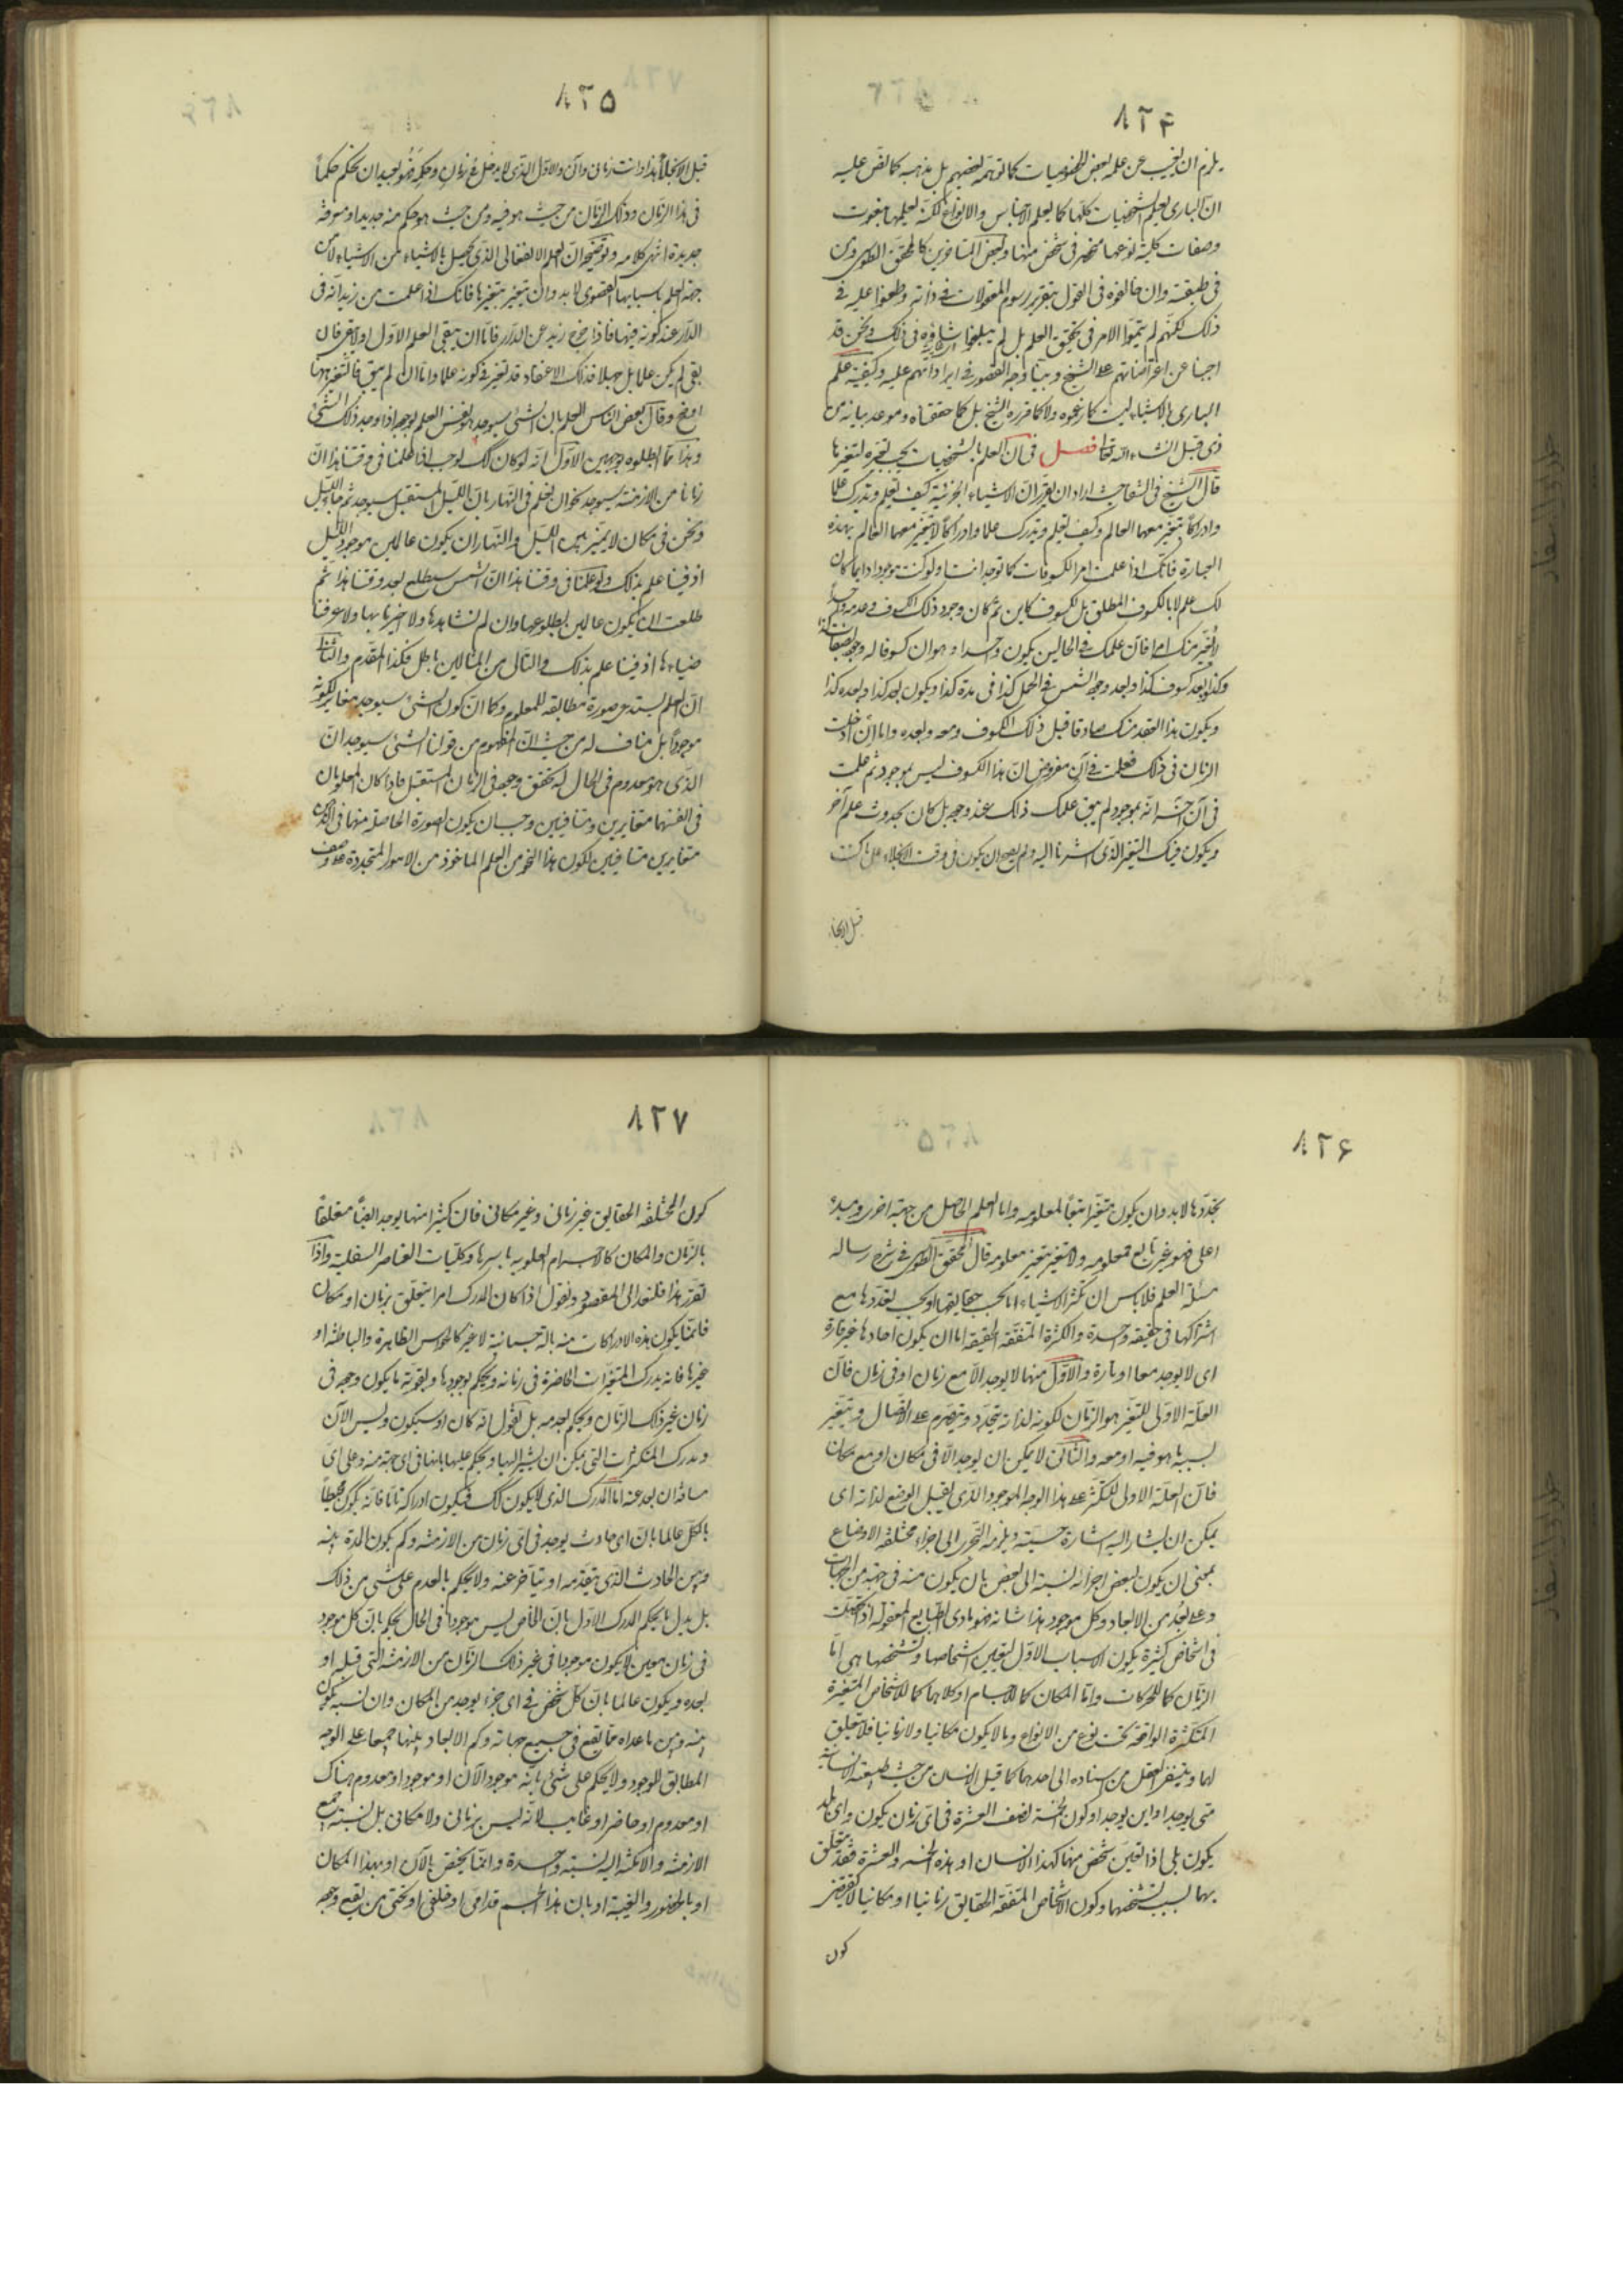 ٨٢۴
يلزم ان يغيب عن علمه بعض الخصوصيات كما توهمه بعضهم بل مذهبه كما نصّ عليه
انّ البارى يعلم الشخصيات كلّها كما يعلم الاجناس والانواع لكنّه يعلمها بنعوت
وصفات كليّة نوعها منحصر فى شخص منها وبعض المتاخرين كالمحقق الطوسى ومن
فى طبقته وان خالفوه فى القول بتقرير رسوم المعقولات فى ذاته وطعنوا عليه فى
ذلك لكنّهم لم يتمّوا الامر فى تحقيق العلم بل لم يبلغوا شاوه فى ذلك ونحن قد
اجبنا عن اعتراضاتهم على الشيخ وبيّنا وجه القصور فى ايراداتهم عليه وكيفية علم
البارى بالاشياء ليست كما زعموه ولا كما قرره الشيخ بل كما حققناه وموعد بيانه من
ذى قبل انشاء الله تعالى فصل فى ان العلم بالشخصيات يجب تغيّره لتغيّرها
قال الشيخ فى التعليقات اراد ان يقرر ان الاشياء الجزئية كيف تعلم وتدرك علما
وادراكا يتغير معهما العالم وكيف تعلم وتدرك علما وادراكا لا يتغير معهما العالم بهذه
العبارة فانّك اذا علمت امر الكسوفات كما توجد انت او لو كنت موجودا دايما كان
لك علم لا بالكسوف المطلق بل لكسوف كاين ثم كان وجود ذلك الكسوف وعدمه واحدا
لا يغيّر منك امرا فان علمك فى الحالين يكون واحدا وهو ان كسوفا له وجود بصفات كذا
وكذا بعد كسوف كذا وبعد وجود الشمس فى الحمل كذا فى مدة كذا ويكون بعد كذا وبعده كذا
ويكون هذا العقد منك صادقا قبل ذلك الكسوف ومعه وبعده واما ان ادخلت
الزمان فى ذلك فعلمت فى آن مفروض انّ هذا الكسوف ليس بموجود ثم علمت
فى آن آخر انه موجود لم يبق علمك ذلك عند وجوده بل كان يحدث علم آخر
ويكون فيك التغيّر الذى اشرنا اليه ولم يصح ان يكون فى وقت الانجلاء على ما كنت
قبل الانجلاء
٨٢۵
قبل الانجلاء هذا وانت زمانى وآنى والاوّل الذى لا يدخل فى زمان وحكمه فهو بعيد ان يحكم حكماً
فى هذا الزمان وذلك الزمان من حيث هو فيه ومن حيث هو حكم منه جديد او معرفة
جديدة انتهى كلامه وتوضيحه ان العلم الانفعالى الذى يحصل بالاشياء من الاشياء لا من
جهة العلم باسبابها القصوى لا بد وان يتغير بتغيرها فانك اذا علمت من زيد انه فى
الدار عند كونه فيها فاذا خرج زيد عن الدار فاما ان يبقى العلم الاول او لا يبقى فان
بقى لم يكن علما بل جهلا فذلك الاعتقاد قد تغير فى كونه علما واما ان لم يبق فالتغير ههنا
اوضح وقال بعض الناس العلم بان الشئ سيوجد هو نفس العلم بوجوده اذا وجد ذلك الشئ
وهذا مما ابطلوه بوجهين الاول انه لو كان كك لوجب اذا علمنا فى وقتنا هذا انّ
زمانا من الازمنة سيوجد نحو ان نعلم فى النهار بان الليل المستقبل سيوجد ثم جاء الليل
ونحن فى مكان لا يتميز بين الليل والنهار ان يكون عالمين بوجود الليل
اذ فينا علم بذلك ولو علمنا فى وقتنا هذا انّ الشمس سيطلع بعد وقتنا هذا ثم
طلعت ان يكون عالمين بطلوعها وان لم نشاهدها ولا اخبرنا بها ولا عرفنا
ضياءها اذ فينا علم بذلك والتالى من المثالين باطل فكذا المقدم والثانى
انّ العلم يستدعى صورة مطابقة للمعلوم وكما ان كون الشئ سيوجد مغاير لكونه
موجوداً بل مناف له من حيث ان المفهوم من قولنا الشئ سيوجد انّ
الذى هو معدوم فى الحال له تحقق وجود فى الزمان المستقبل فاذا كان المعلومان
فى انفسهما متغايرين ومتنافيين وجب ان يكون الصورة الحاصلة منهما فى الذهن
متغايرين متنافيين لكون هذا النحو من العلم الماخوذ من الامور المتجددة على وصف
٨٢۶
تجدّدها لا بد وان يكون متغيّرا متبعا لمعلومه واما العلم الحاصل من جهة اخرى ومبدء
اعلى فهو غير تابع لمعلومه ولا متغير بتغير معلومه قال المحقق الطوسى فى شرح رسالة
مسئلة العلم فلا باس ان تكثر الاشياء اما بحسب حقايقها او بحسب تعددها مع
اشتراكها فى حقيقة واحدة والكثرة المتفقة الحقيقة اما ان يكون احادها غير قارة
اى لا يوجد معا او قارة والاول منها لا يوجد الا مع زمان او فى زمان فان
العلة الاولى للتغير هو الزمان لكونه لذاته يتجدد ويتصرم على الاتصال ويتغير
بسببه ما هو فيه او معه والثانى لا يمكن ان يوجد الا فى مكان او مع مكان
فان العلة الاولى للتكثر على هذا الوجه الموجود الذى يقبل الوضع لذاته اى
يمكن ان يشار اليه اشارة حسية ويلزمه التجزى الى اجزاء مختلفة الاوضاع
بمعنى ان يكون لبعض اجزائه نسبة الى بعض بان يكون منه فى جهة من الجهات
وعلى بعد من الابعاد وكل موجود هذا شانه فهو مادى الطبايع المعقولة اذا تحصلت
فى اشخاص كثيرة يكون الاسباب الاول لتعيين اشخاصها وتشخصها هى اما
الزمان كما للحركات واما المكان كما للاجسام او كلاهما كما للاشخاص المتغيرة
المتكثرة الواقعة تحت نوع من الانواع وما لا يكون مكانيا ولا زمانيا فلا يتعلق
بهما ويتنفر العقل من اسناده الى احدهما كما قيل الانسان من حيث طبيعته الانسانية
متى يوجد او اين يوجد او كون الخمسة نصف العشرة فى اى زمان يكون واى بلد
يكون بلى اذا تعين شخص منها كهذا الانسان او هذه الخمسة والعشرة فقد يتعلق
بهما بسبب تشخصهما وكون الاشخاص المتفقة الحقايق زمانيا او مكانيا لا يقتضى
كون
٨٢٧
كون المختلفة الحقايق غير زمانى وغير مكانى فان كثيرا منها يوجد ايضا متعلقاً
بالزمان والمكان كالاجرام العلوية باسرها وكليات العناصر السفلية واذا
تقرر هذا فلنعد الى المقصود ونقول اذا كان المدرك امرا يتعلق بزمان او مكان
فانما يكون هذه الادراكات منه بالة جسمانية لا غير كالحواس الظاهرة والباطنة او
غيرها فانه يدرك المتغيرات الحاضرة فى زمانه ويحكم بوجودها ويفوته ما يكون وجوده فى
زمان غير ذلك الزمان ويحكم بعدمه بل نقول انه كان او سيكون وليس الآن
ويدرك المتكثرات التى يمكن ان يشير اليها ويحكم عليها بانها فى اى جهة منه وعلى اى
مسافة ان بعد عنه اما المدرك الذى لا يكون كك فيكون ادراكه تاما فانه يكون محيطاً
بالكل عالما بان اى حادث يوجد فى اى زمان من الازمنة وكم يكون المدة بينه
وبين الحادث الذى يتقدمه او يتاخر عنه ولا يحكم بالعدم على شئ من ذلك
بل بدل ما يحكم المدرك الاول بان الماضى ليس موجودا فى الحال يحكم بان كل موجود
فى زمان معين لا يكون موجودا فى غير ذلك الزمان من الازمنة التى قبله او
بعده ويكون عالما بان كل شخص فى اى جزء يوجد من المكان واى نسبة يكون
بينه وبين ما عداه مما يقع فى جميع جهاته وكم الابعاد بينها جميعا على الوجه
المطابق للوجود ولا يحكم على شئ بانه موجود الآن او موجود او معدوم هناك
او معدوم او حاضر او غايب لانه ليس بزمانى ولا مكانى بل نسبة جميع
الازمنة والامكنة اليه نسبة واحدة وانما يختص بالآن او بهذا المكان
او بالحضور والغيبة او بان هذا الجسم قدامى او خلفى او تحتى من يقع وجوده